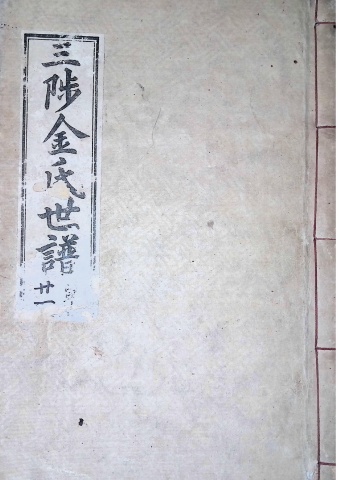 三陟金氏世譜
廿一